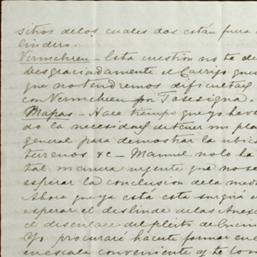 sitios de los cuales dos están fuera
lindero.
Vermehren - Esta cuestión no te de
Desgraciadamente el Carrizo que
que no tendremos dificultad
con Vermehren por
Mapas - Hace tiempo que yo he
do la necesidad de tener un pla
general para demostrar la ubic
terrenos &c - Manuel no lo ha
tal manera urgente que no se
esperar la conclusión de la me
Ahora que ya está esta surgirá
esperar el deslinde de las Anexa
el desenlace del pleito de
Yo procuraré hacerte formar en
en escala conveniente y te lo